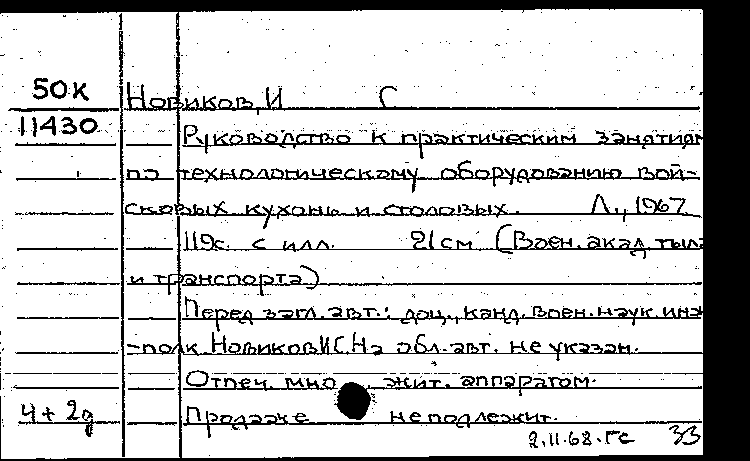 50К Новиков, И С
11430 Руководство к практическим занятиям
по технологическому оборудованию вой-
сковых кухонь и столовых. Л., 1967
119с. с илл. 21см (Воен. акад. тыла
и транспорта)
Перед загл. авт.: доц., канд. воен. наук инж
-полк. Новиков И.С. На обл. авт. не указан.
Отпеч. мно жит. аппаратом.
4+2д Продаже не подлежит.
2.11.68.ГС 33